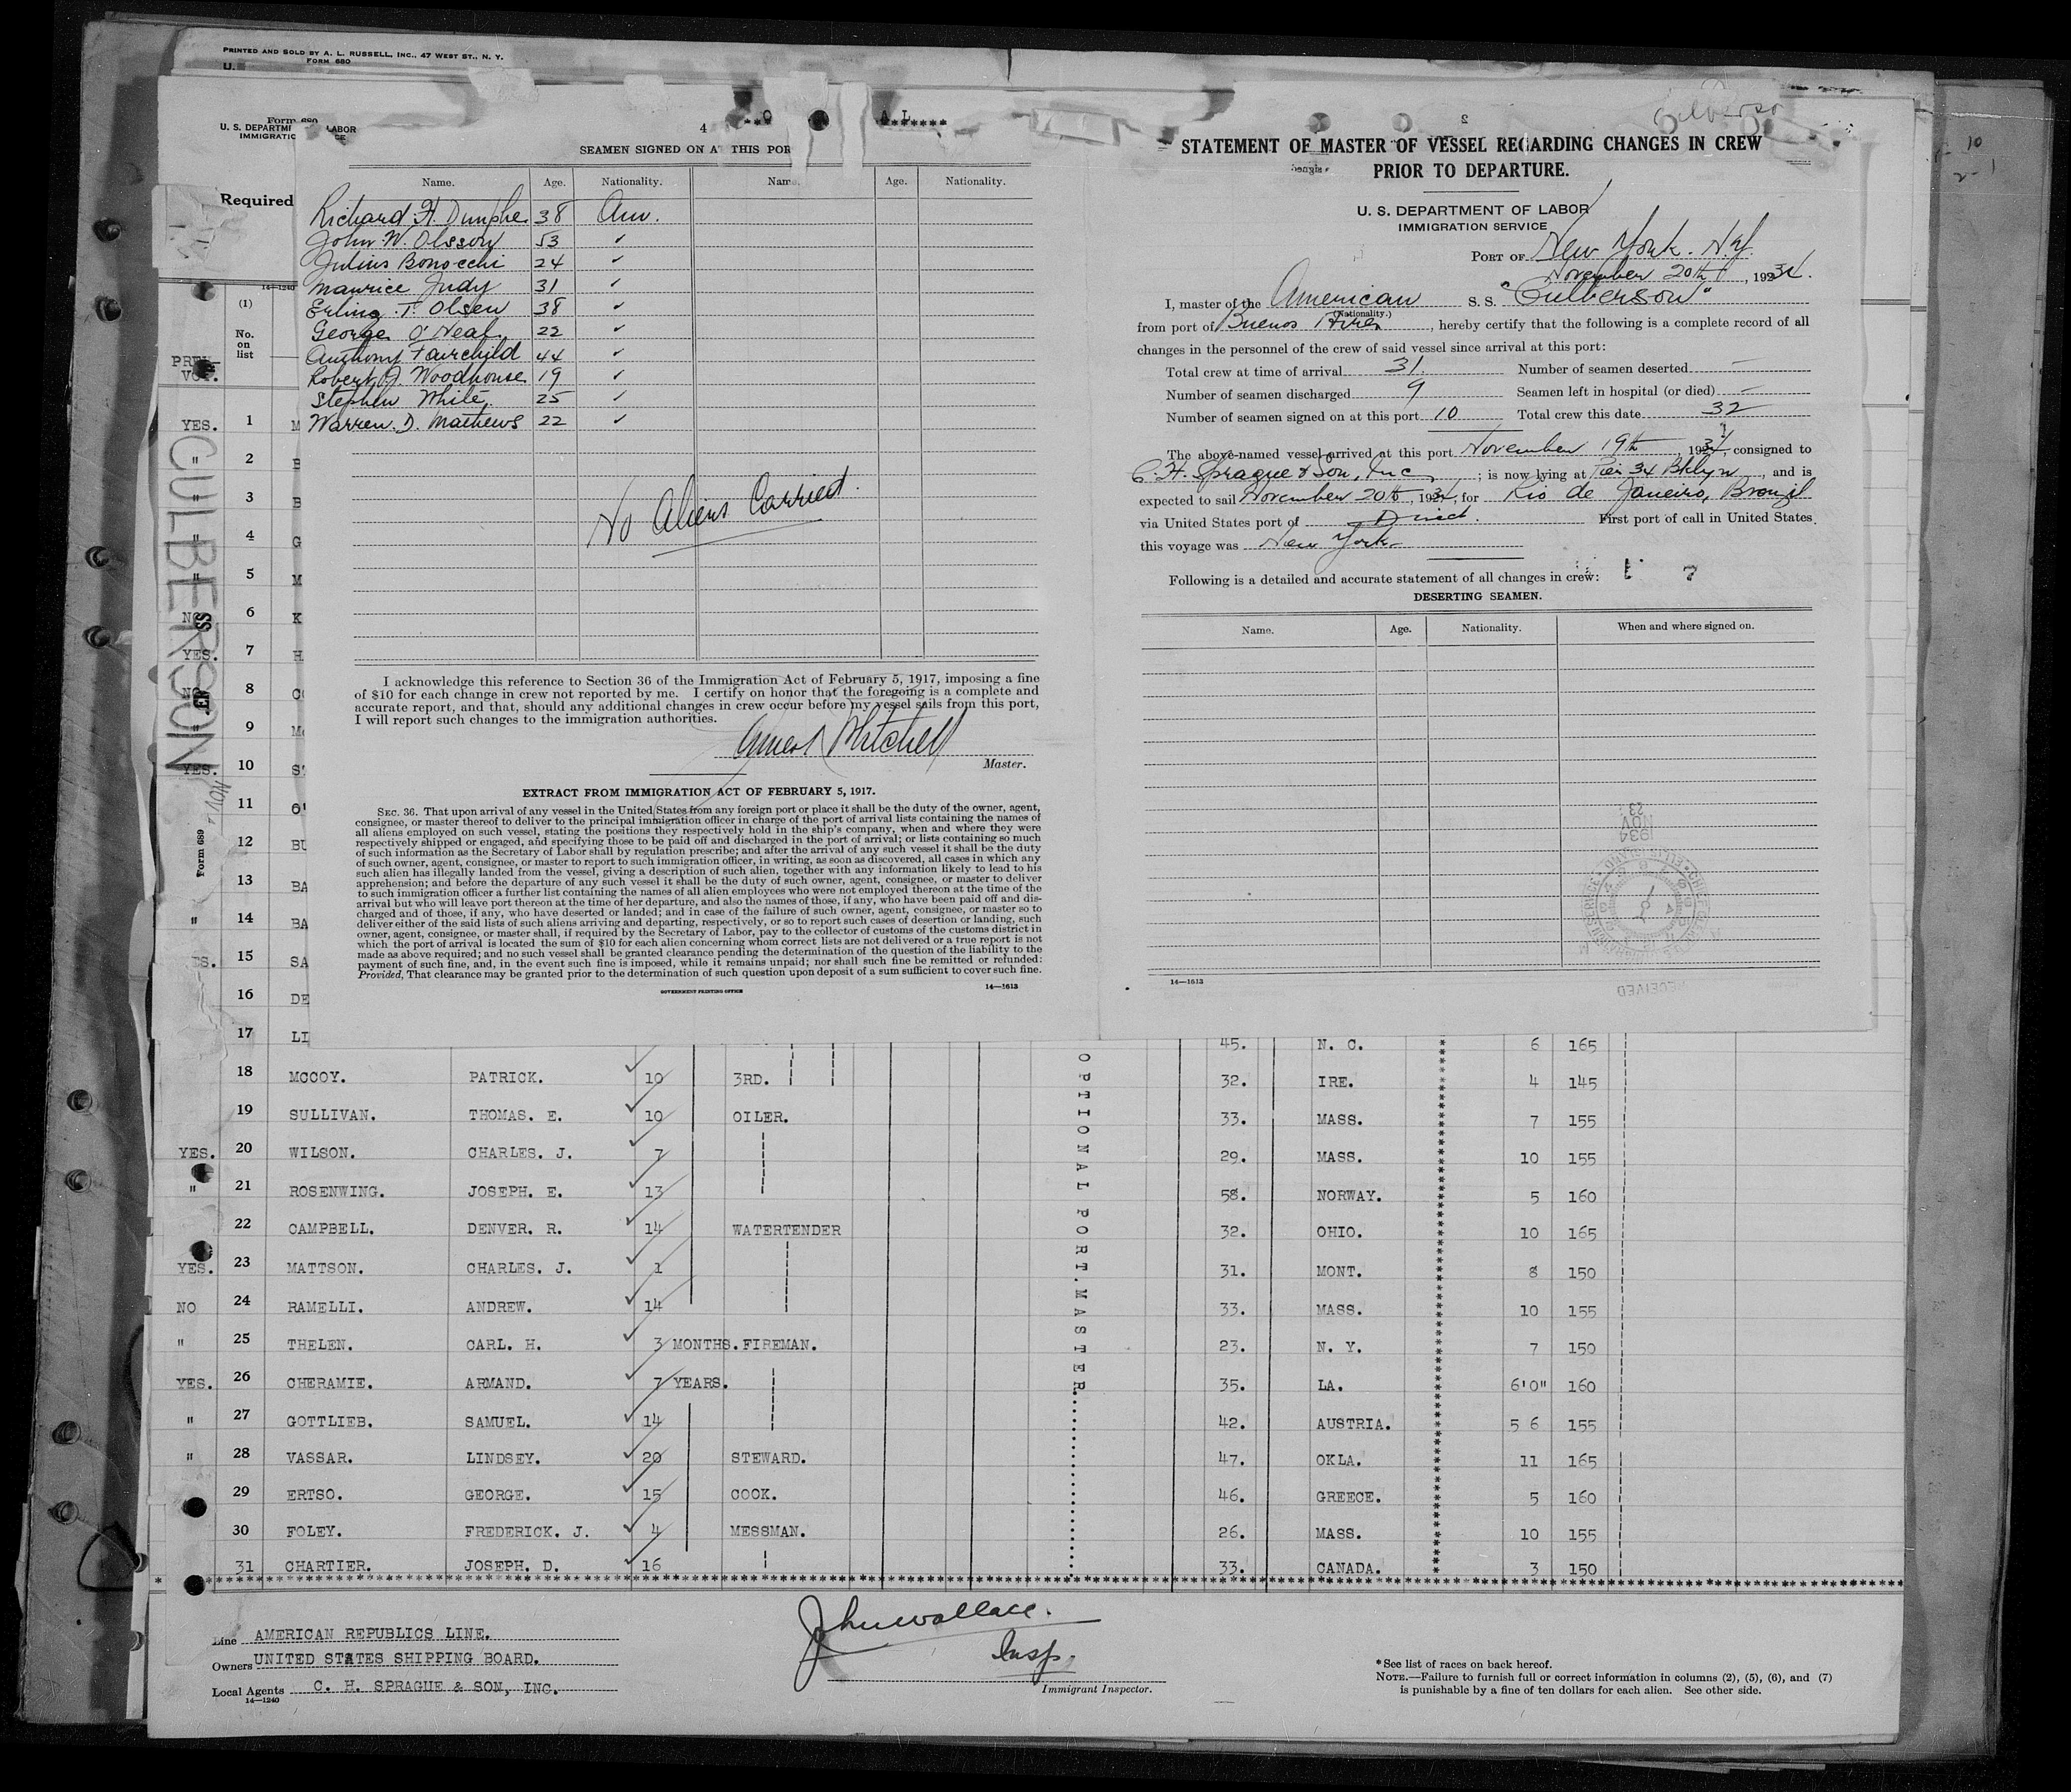 PRINTED AND SOLD BY A. L. RUSSELL, INC., 47 WEST ST., N. Y.
FORM 680
U.
Form 680
U. S. DEPARTM LABOR
IMMIGRATIO CE
Required
(1)
No.
on
list
14-1240
CULBERSON
SS
NOV
Form 689
4
SEAMEN SIGNED ON AT THIS POR
Name. Age. Nationality. Name. Age. Nationality.
Richard H. Dunphe 38 Am.
John W. Olsson 53 ✓
Julius Bonocchi 24 ✓
Maurice Judy 31 ✓
Erling T. Olsen 38 ✓
George O'Neal 22 ✓
Anthony Fairchild 44 ✓
Robert J. Woodhouse 19 ✓
Stephen White 25 ✓
Warren D. Mathews 22 ✓
No Aliens Carried.
I acknowledge this reference to Section 36 of the Immigration Act of February 5, 1917, imposing a fine
of $10 for each change in crew not reported by me. I certify on honor that the foregoing is a complete and
accurate report, and that, should any additional changes in crew occur before my vessel sails from this port,
I will report such changes to the immigration authorities.
Mitchell
Master.
EXTRACT FROM IMMIGRATION ACT OF FEBRUARY 5, 1917.
SEC. 36. That upon arrival of any vessel in the United States from any foreign port or place it shall be the duty of the owner, agent,
consignee, or master thereof to deliver to the principal immigration officer in charge of the port of arrival lists containing the names of
all aliens employed on such vessel, stating the positions they respectively hold in the ship's company, when and where they were
respectively shipped or engaged, and specifying those to be paid off and discharged in the port of arrival; or lists containing so much
of such information as the Secretary of Labor shall by regulation prescribe; and after the arrival of any such vessel it shall be the duty
of such owner, agent, consignee, or master to report to such immigration officer, in writing, as soon as discovered, all cases in which any
such alien has illegally landed from the vessel, giving a description of such alien, together with any information likely to lead to his
apprehension; and before the departure of any such vessel it shall be the duty of such owner, agent, consignee, or master to deliver
to such immigration officer a further list containing the names of all alien employees who were not employed thereon at the time of the
arrival but who will leave port thereon at the time of her departure, and also the names of those, if any, who have been paid off and dis-
charged and of those, if any, who have deserted or landed; and in case of the failure of such owner, agent, consignee, or master so to
deliver either of the said lists of such aliens arriving and departing, respectively, or so to report such cases of desertion or landing, such
owner, agent, consignee, or master shall, if required by the Secretary of Labor, pay to the collector of customs of the customs district in
which the port of arrival is located the sum of $10 for each alien concerning whom correct lists are not delivered or a true report is not
made as above required; and no such vessel shall be granted clearance pending the determination of the question of the liability to the
payment of such fine, and, in the event such fine is imposed, while it remains unpaid; nor shall such fine be remitted or refunded:
Provided, That clearance may be granted prior to the determination of such question upon deposit of a sum sufficient to cover such fine.
GOVERNMENT PRINTING OFFICE 14—1613
STATEMENT OF MASTER OF VESSEL REGARDING CHANGES IN CREW
PRIOR TO DEPARTURE.
U. S. DEPARTMENT OF LABOR
IMMIGRATION SERVICE
PORT OF New York. N.Y.
November 20th, 1934.
I, master of the American S. S. "Culberson"
(Nationality.)
from port of Buenos Aires, hereby certify that the following is a complete record of all
changes in the personnel of the crew of said vessel since arrival at this port:
Total crew at time of arrival 31. Number of seamen deserted —
Number of seamen discharged 9 Seamen left in hospital (or died) —
Number of seamen signed on at this port 10 Total crew this date 32
The above-named vessel arrived at this port November 19th, 1934, consigned to
C. H. Sprague & Son, Inc; is now lying at Pier 34 Bklyn, and is
expected to sail November 20th, 1934, for Rio de Janeiro, Brazil
via United States port of Direct. First port of call in United States
this voyage was New York.
Following is a detailed and accurate statement of all changes in crew:
DESERTING SEAMEN.
Name. Age. Nationality. When and where signed on.
NOV 23 1934
RECEIVED
14—1613
YES. 1 M
" 2 B
" 3 B
" 4 G
" 5 M
NO 6 K
YES. 7 H
NO 8 C
" 9 M
YES. 10 S
11 O'
12 BU
13 BA
" 14 BA
15 SA
16 DE
17 LI 45. N. C. 6 165
18 MCCOY. PATRICK. 10 3RD. 32. IRE. 4 145
19 SULLIVAN. THOMAS. E. 10 OILER. 33. MASS. 7 155
YES. 20 WILSON. CHARLES. J. 7 29. MASS. 10 155
" 21 ROSENWING. JOSEPH. E. 13 58. NORWAY. 5 160
22 CAMPBELL. DENVER. R. 14 WATERTENDER 32. OHIO. 10 165
YES. 23 MATTSON. CHARLES. J. 1 31. MONT. 8 150
NO 24 RAMELLI. ANDREW. 14 33. MASS. 10 155
" 25 THELEN. CARL. H. 3 MONTHS. FIREMAN. 23. N. Y. 7 150
YES. 26 CHERAMIE. ARMAND. 7 YEARS. 35. LA. 6'0" 160
" 27 GOTTLIEB. SAMUEL. 14 42. AUSTRIA. 5 6 155
" 28 VASSAR. LINDSEY. 20 STEWARD. 47. OKLA. 11 165
29 ERTSO. GEORGE. 15 COOK. 46. GREECE. 5 160
30 FOLEY. FREDERICK. J. 4 MESSMAN. 26. MASS. 10 155
31 CHARTIER. JOSEPH. D. 16 33. CANADA. 3 150
OPTIONAL PORT. MASTER.
Line AMERICAN REPUBLICS LINE.
Owners UNITED STATES SHIPPING BOARD.
Local Agents C. H. SPRAGUE & SON, INC.
14—1240
John Wallace.
Insp.
Immigrant Inspector.
*See list of races on back hereof.
NOTE.—Failure to furnish full or correct information in columns (2), (5), (6), and (7)
is punishable by a fine of ten dollars for each alien. See other side.